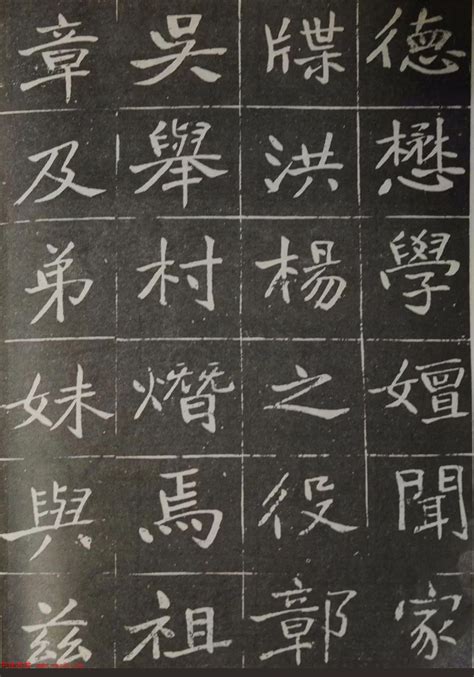 德懋學嬗聞家
牒洪楊之役鄣
吳舉村熸焉祖
章及弟妹與茲